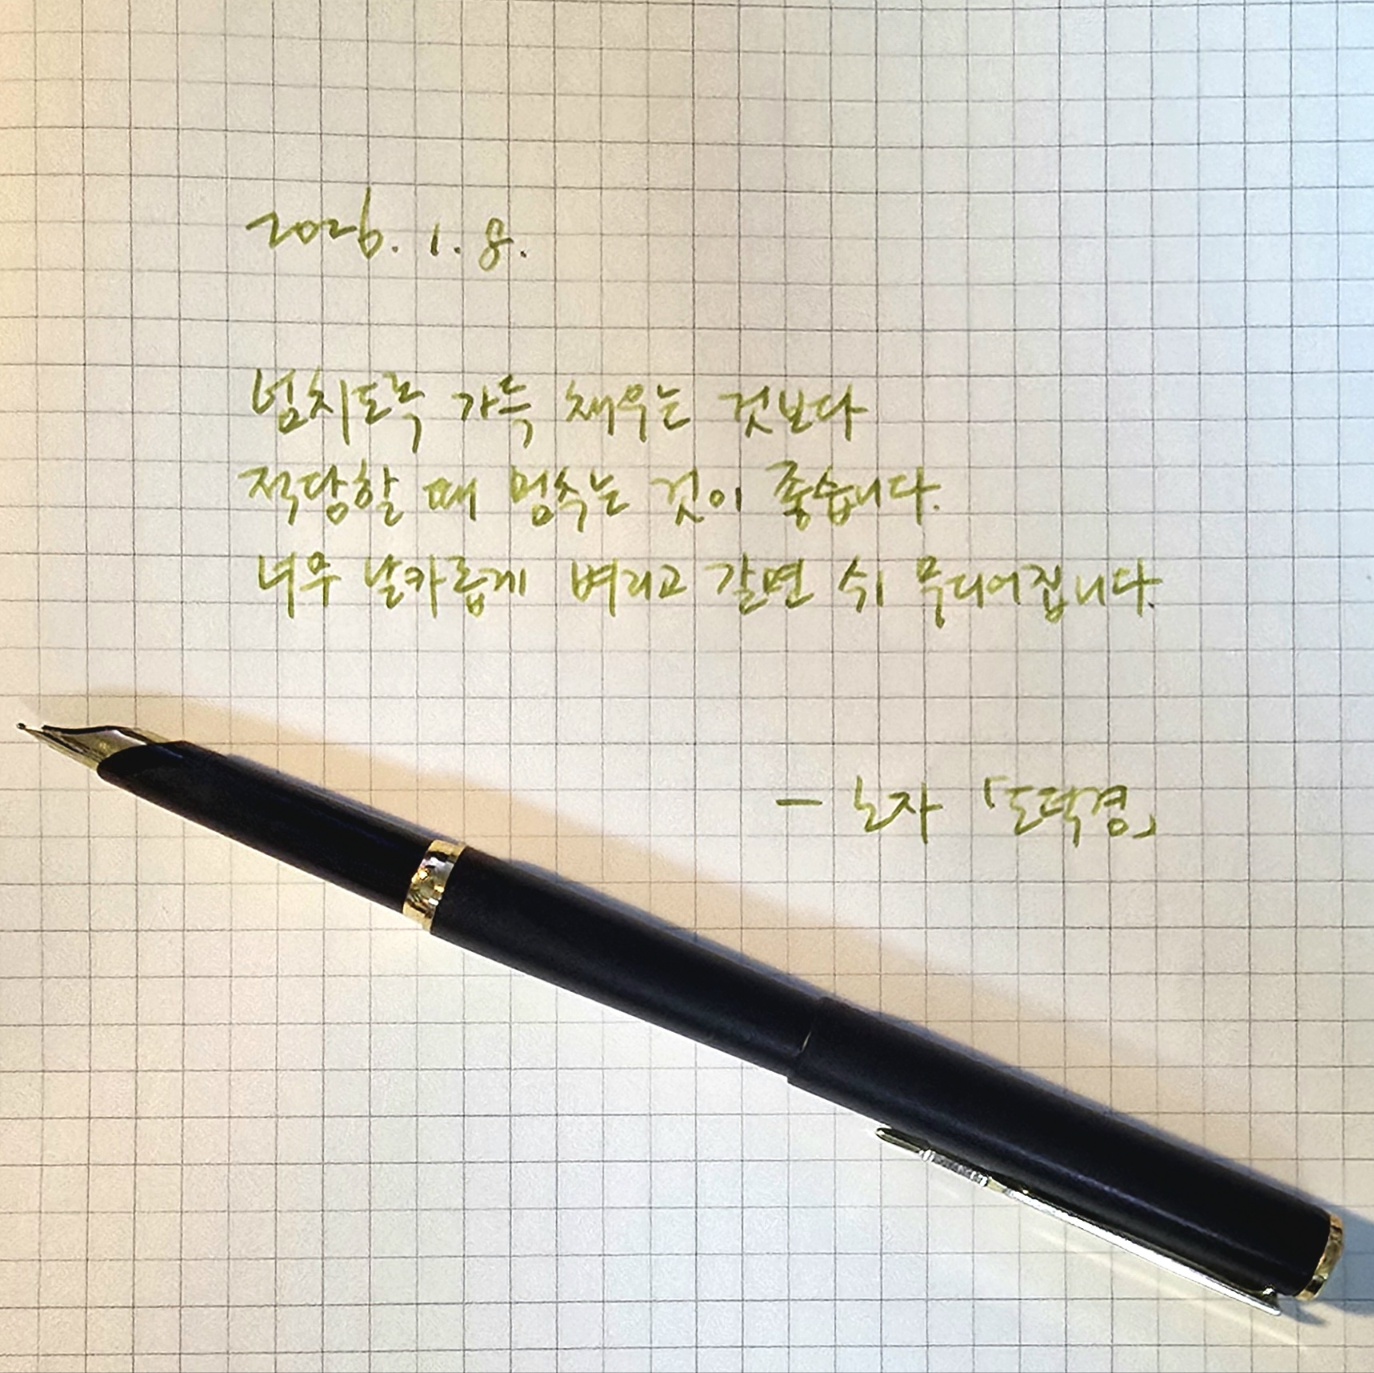 2026. 1. 8.
넘치도록 가득 채우는 것보다
적당할 때 멈추는 것이 좋습니다.
너무 날카롭게 벼리고 갈면 쉬 무디어집니다.
- 노자 「도덕경」